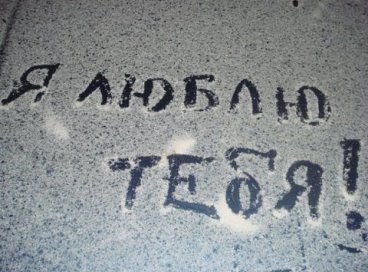 Я ЛЮБЛЮ
ТЕБЯ!